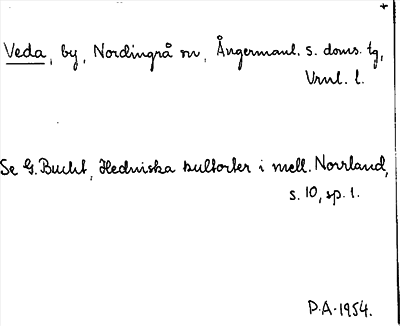 +
Veda, by, Nordingrå sn, Ångermanl. s. doms. tg,
Vrnl. l.
Se G. Bucht, Hedniska kultorter i mell. Norrland,
s. 10, sp. 1.
D.A. 1954.